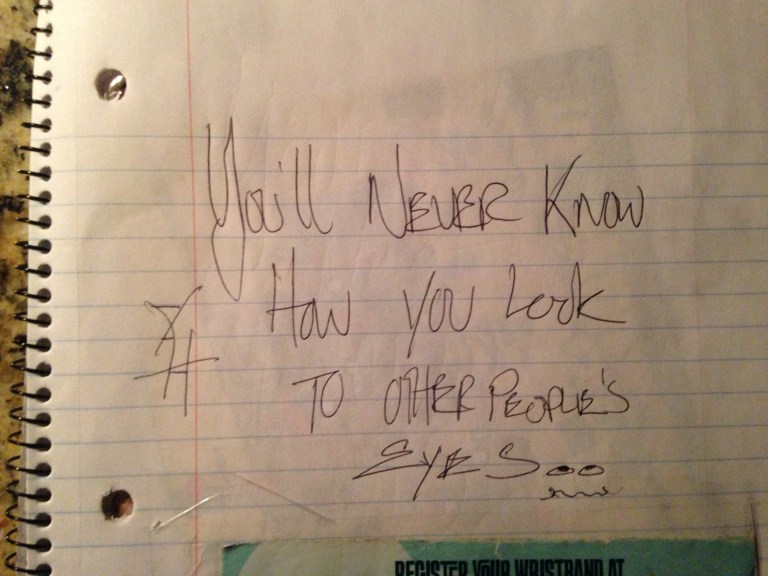 You'll NEVER Know
How you Look
TO OTHER PEOPLE'S
EYES..
REGISTER YOUR WRISTBAND AT